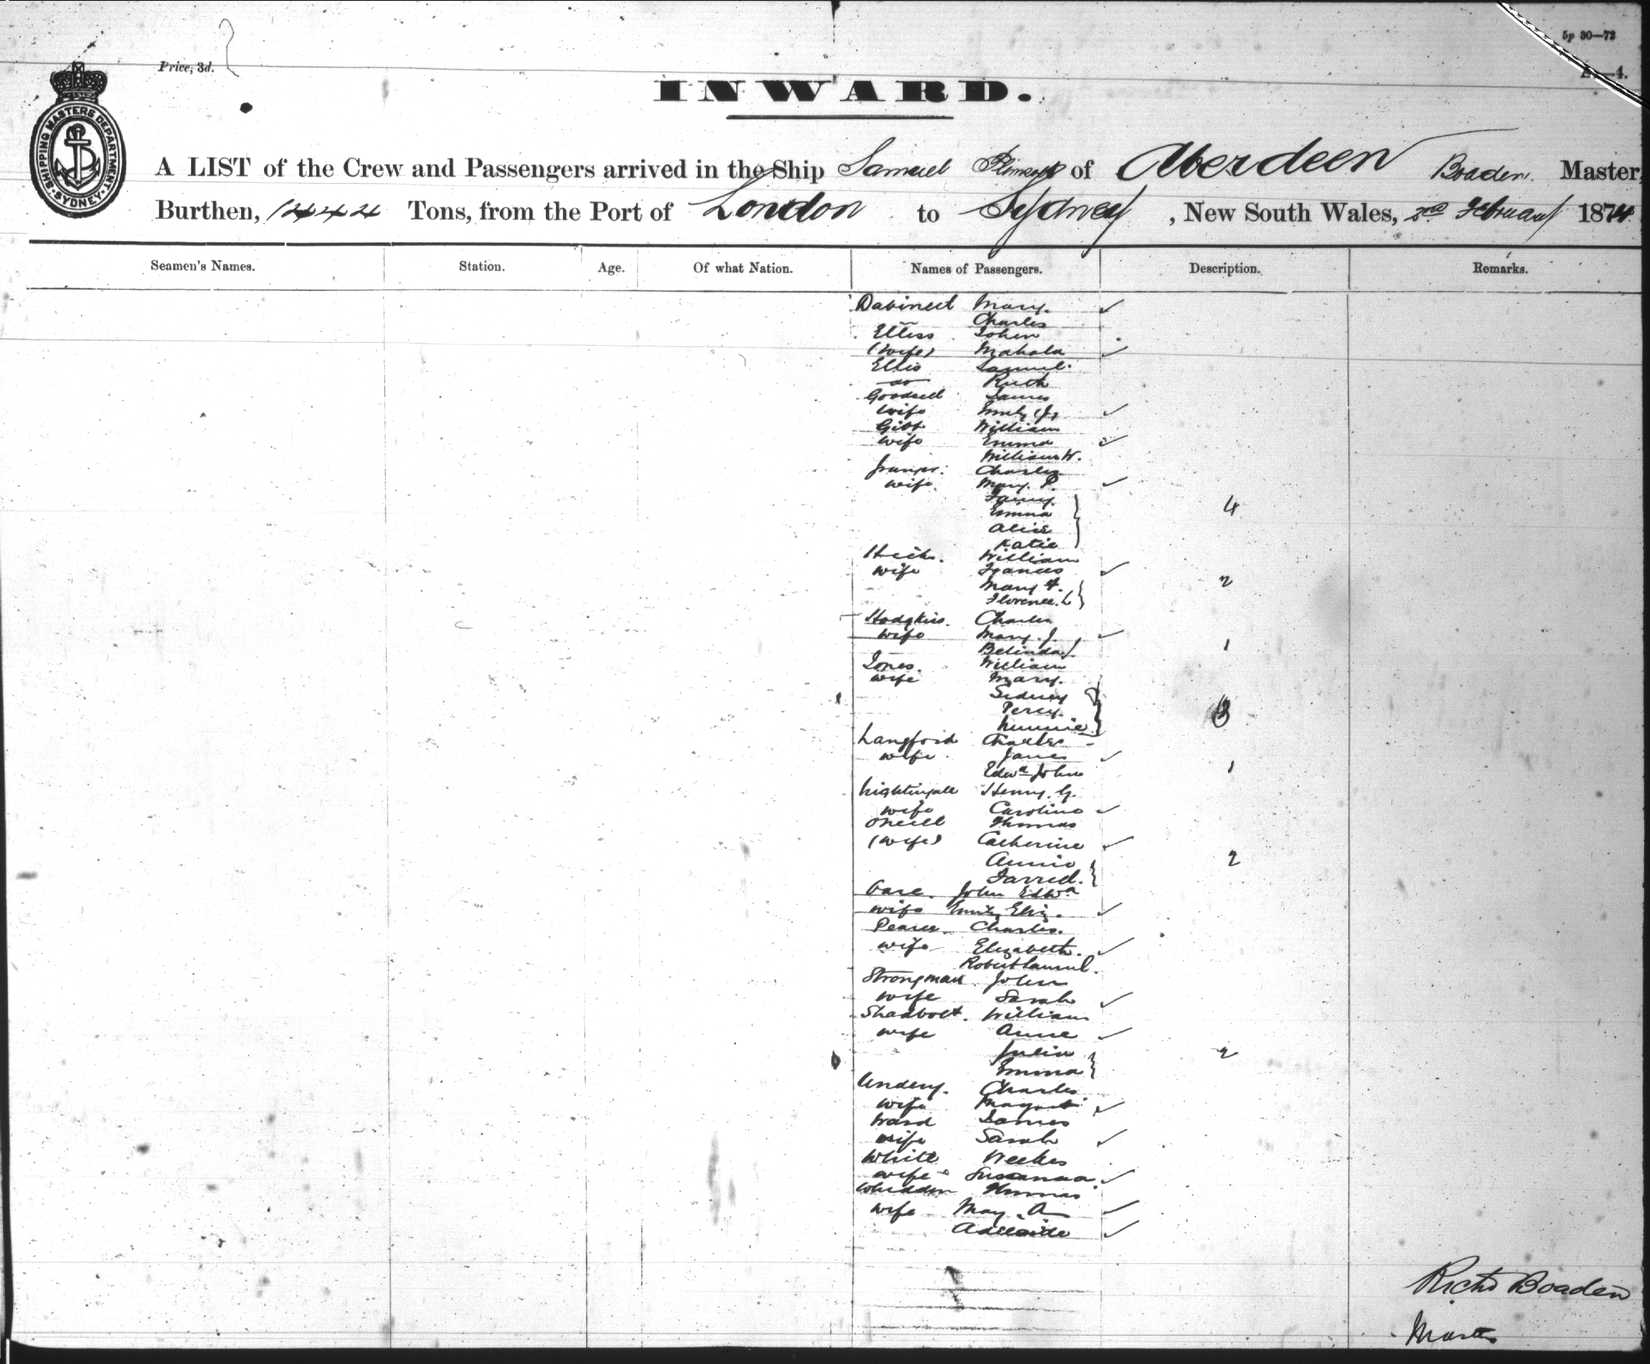 5p 30—73
Price, 3d.
—4.
SHIPPING MASTERS DEPARTMENT SYDNEY
INWARD.
A LIST of the Crew and Passengers arrived in the Ship Samuel Plimsoll of Aberdeen Boaden Master,
Burthen, 1444 Tons, from the Port of London to Sydney, New South Wales, 2nd February 1874
Seamen's Names. Station. Age. Of what Nation. Names of Passengers. Description. Remarks.
Mary
Charles
Elliss John
(wife) Mahala
Ellis Samuel
do Ruth
James
wife Emily
Gibb William
wife Emma
William W.
Charles
wife Mary P.
Fanny
Emma 4
Alice
Katie
William
wife Frances
Mary F. 2
Florence L
Hodgkiss Charles
wife Mary J.
Belinda 1
Jones William
wife Mary
Sidney
Percy 3
Langford Charles
wife Jane
Edwd John 1
Nightingall Henry G.
wife Caroline
O'Neill Thomas
(wife) Catherine
Annie 2
John Edwd
wife Emily Eliz.
Pearce Charles
wife Elizabeth
Robert Samuel
Strongman John
wife Sarah
Shadbolt William
wife Anne
Julia 2
Emma
Charles
wife Margaret
Ward James
wife Sarah
White Weekes
wife Susannah
Whiddon Thomas
wife Mary A
Adelaide
Richd Boaden
Master